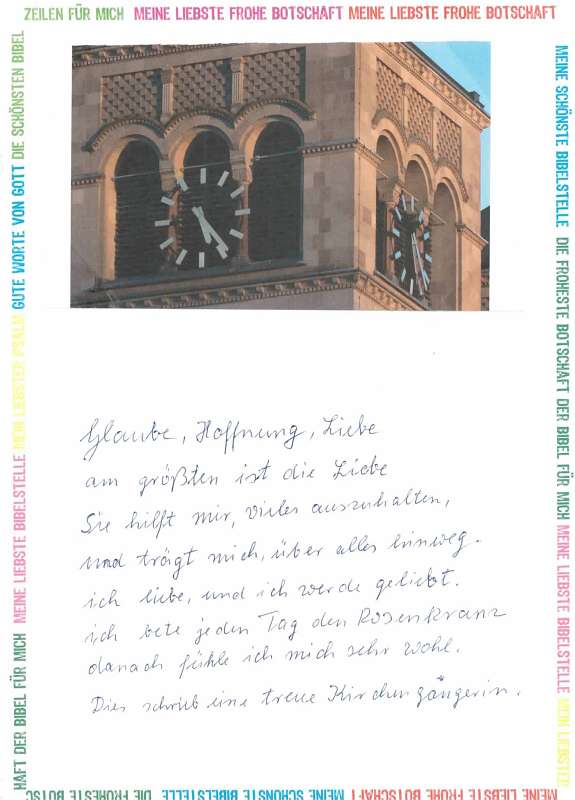 ZEILEN FÜR MICH MEINE LIEBSTE FROHE BOTSCHAFT MEINE LIEBSTE FROHE BOTSCHAFT
MEINE SCHÖNSTE BIBELSTELLE DIE FROHESTE BOTSCHAFT DER BIBEL FÜR MICH MEINE LIEBSTE BIBELSTELLE MEIN LIEBSTER
Glaube, Hoffnung, Liebe
am größten ist die Liebe
Sie hilft mir, vieles auszuhalten,
und trägt mich, über alles hinweg.
ich liebe, und ich werde geliebt.
ich bete jeden Tag den Rosenkranz
danach fühle ich mich sehr wohl.
Dies schrieb eine treue Kirchengängerin.
MEINE LIEBSTE FROHE BOTSCHAFT MEINE SCHÖNSTE BIBELSTELLE DIE FROHESTE BOTSC
HAFT DER BIBEL FÜR MICH MEINE LIEBSTE BIBELSTELLE MEIN LIEBSTER PSALM GUTE WORTE VON GOTT DIE SCHÖNSTEN BIBEL